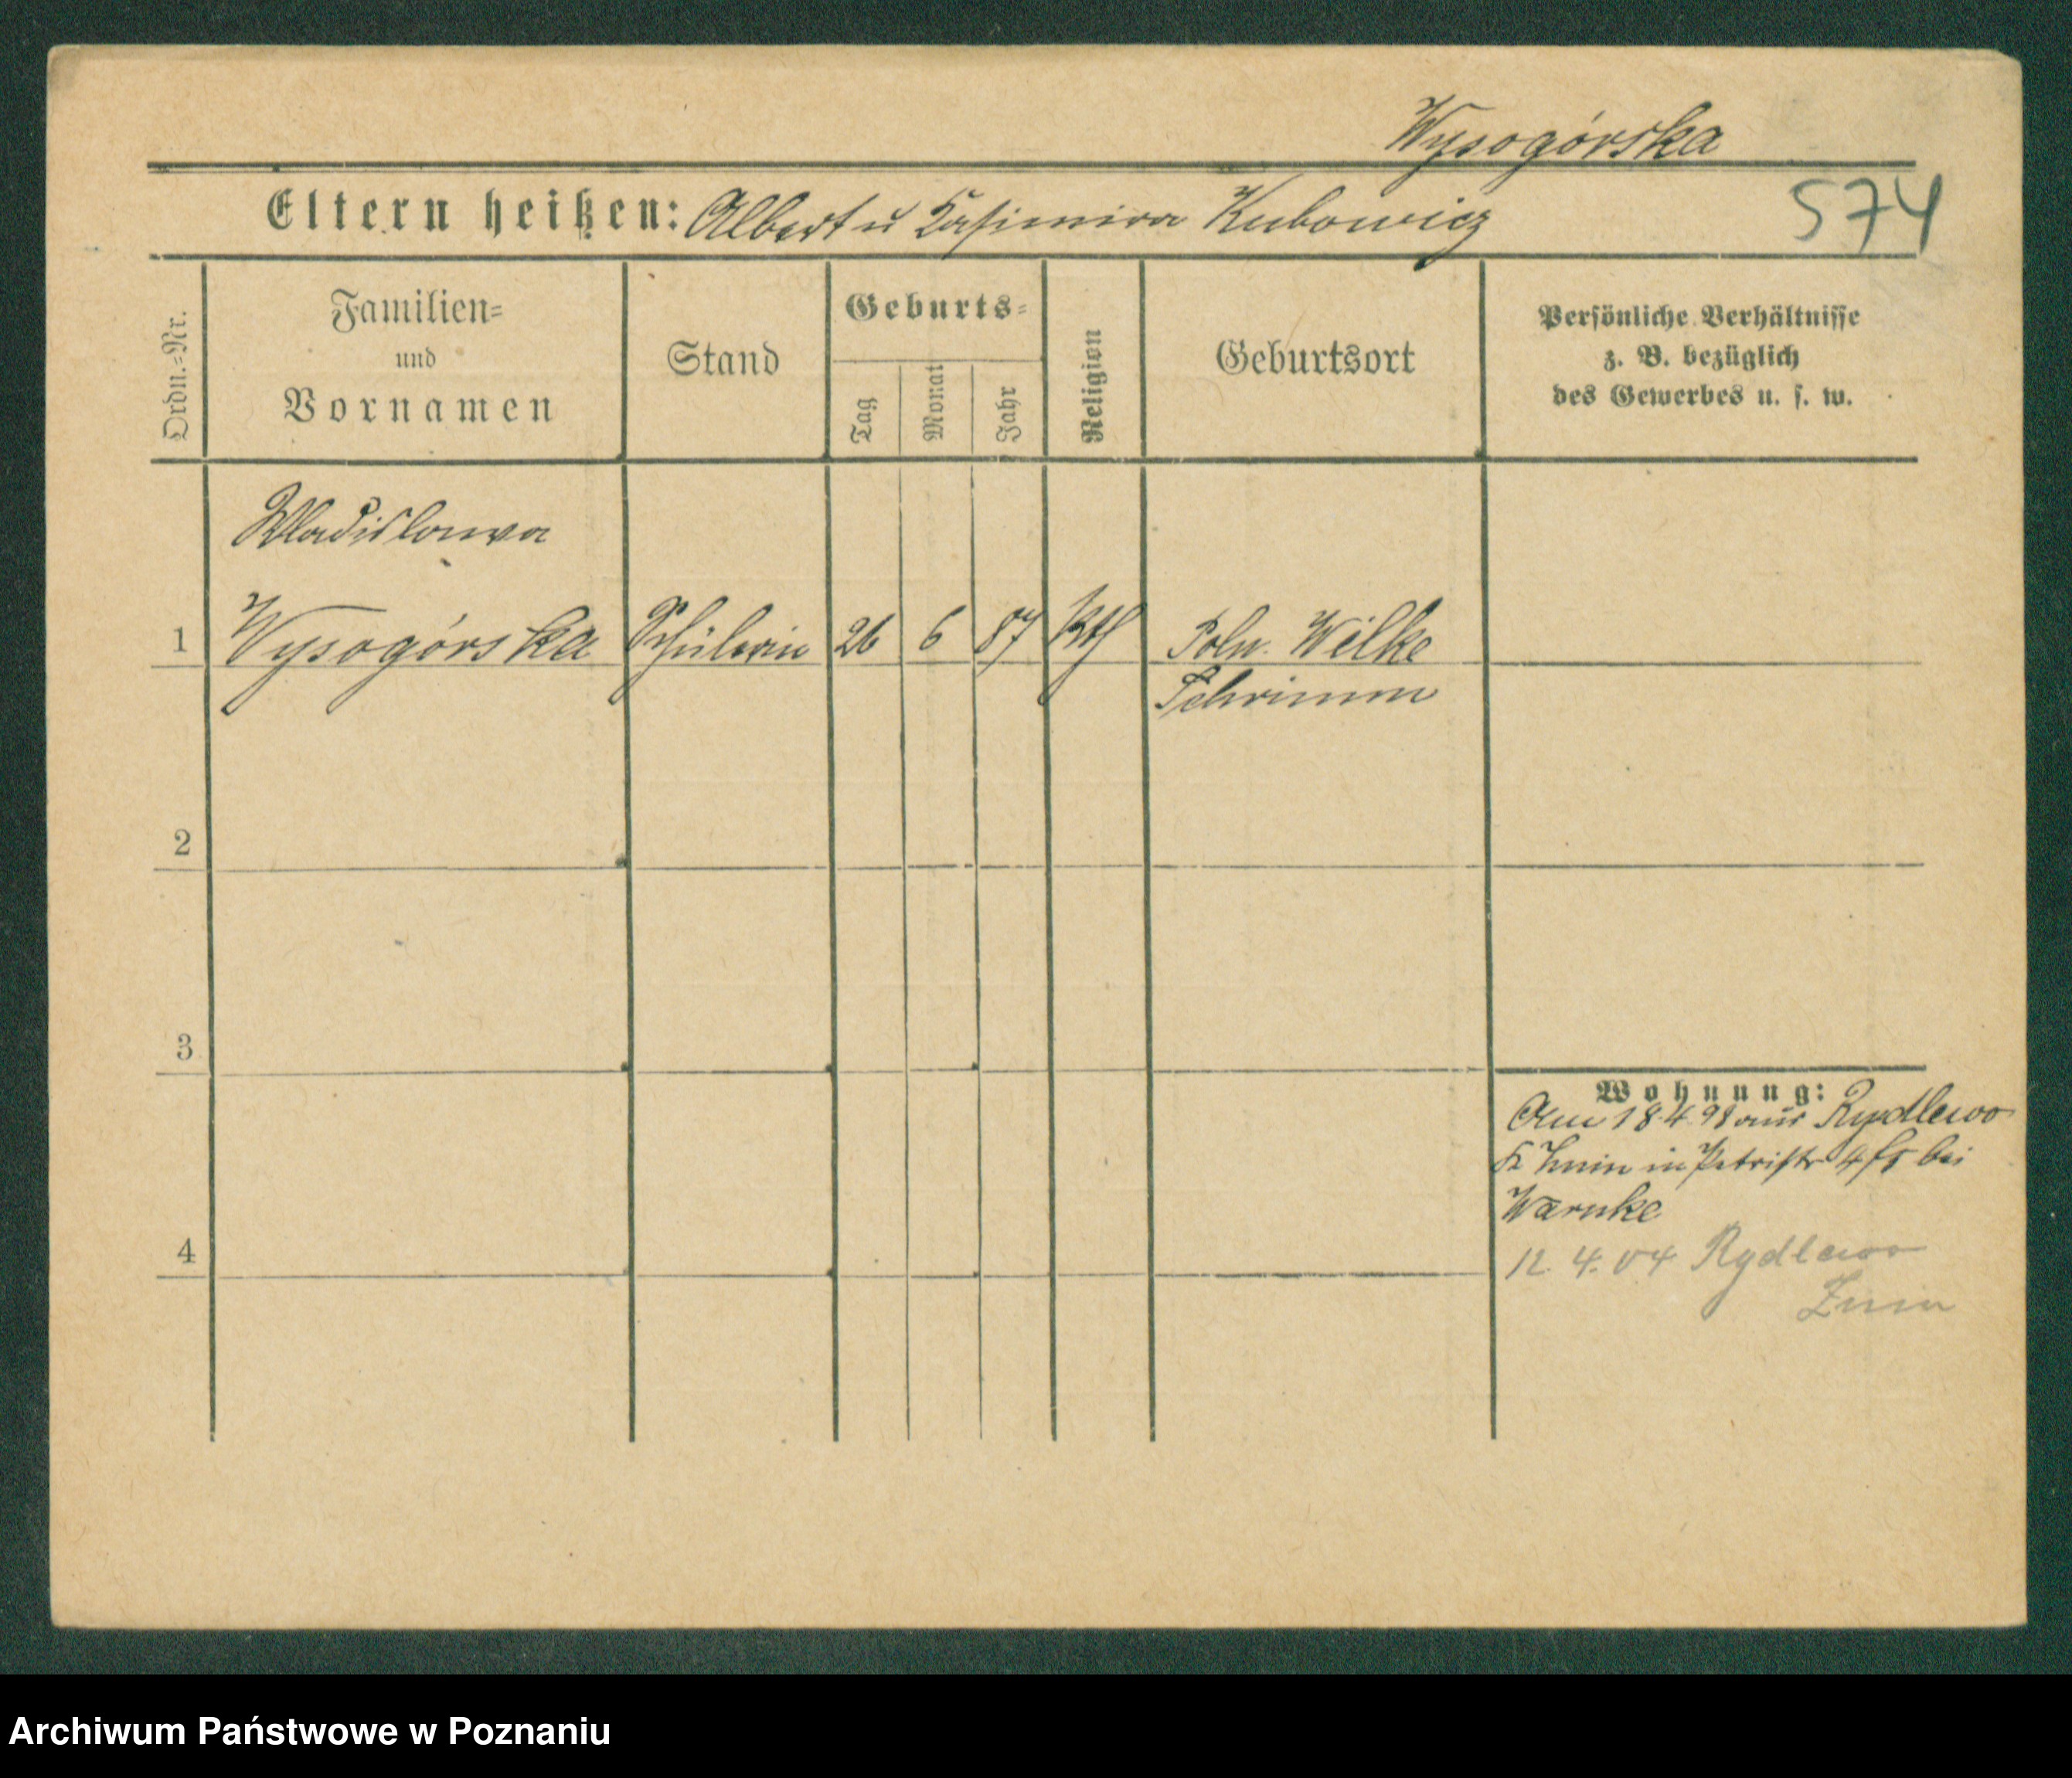 Wysogórska
Eltern heißen: Albert u Casimira Kubowicz
574
Ordn.=Nr.
Familien=
und
Vornamen
Stand
Geburts=
Tag
Monat
Jahr
Religion
Geburtsort
Persönliche Verhältnisse
z. B. bezüglich
des Gewerbes u. s. w.
Wladislawa
1 Wysogórska Schülerin 26 6 87 kth Poln. Wilke
Schrimm
2
3
Wohnung:
Am 18.4.98 aus Rydlewo
Kr Znin in Petristr 4 bei
Warnke
4
12. 4. 04 Rydlewo
Znin
Archiwum Państwowe w Poznaniu